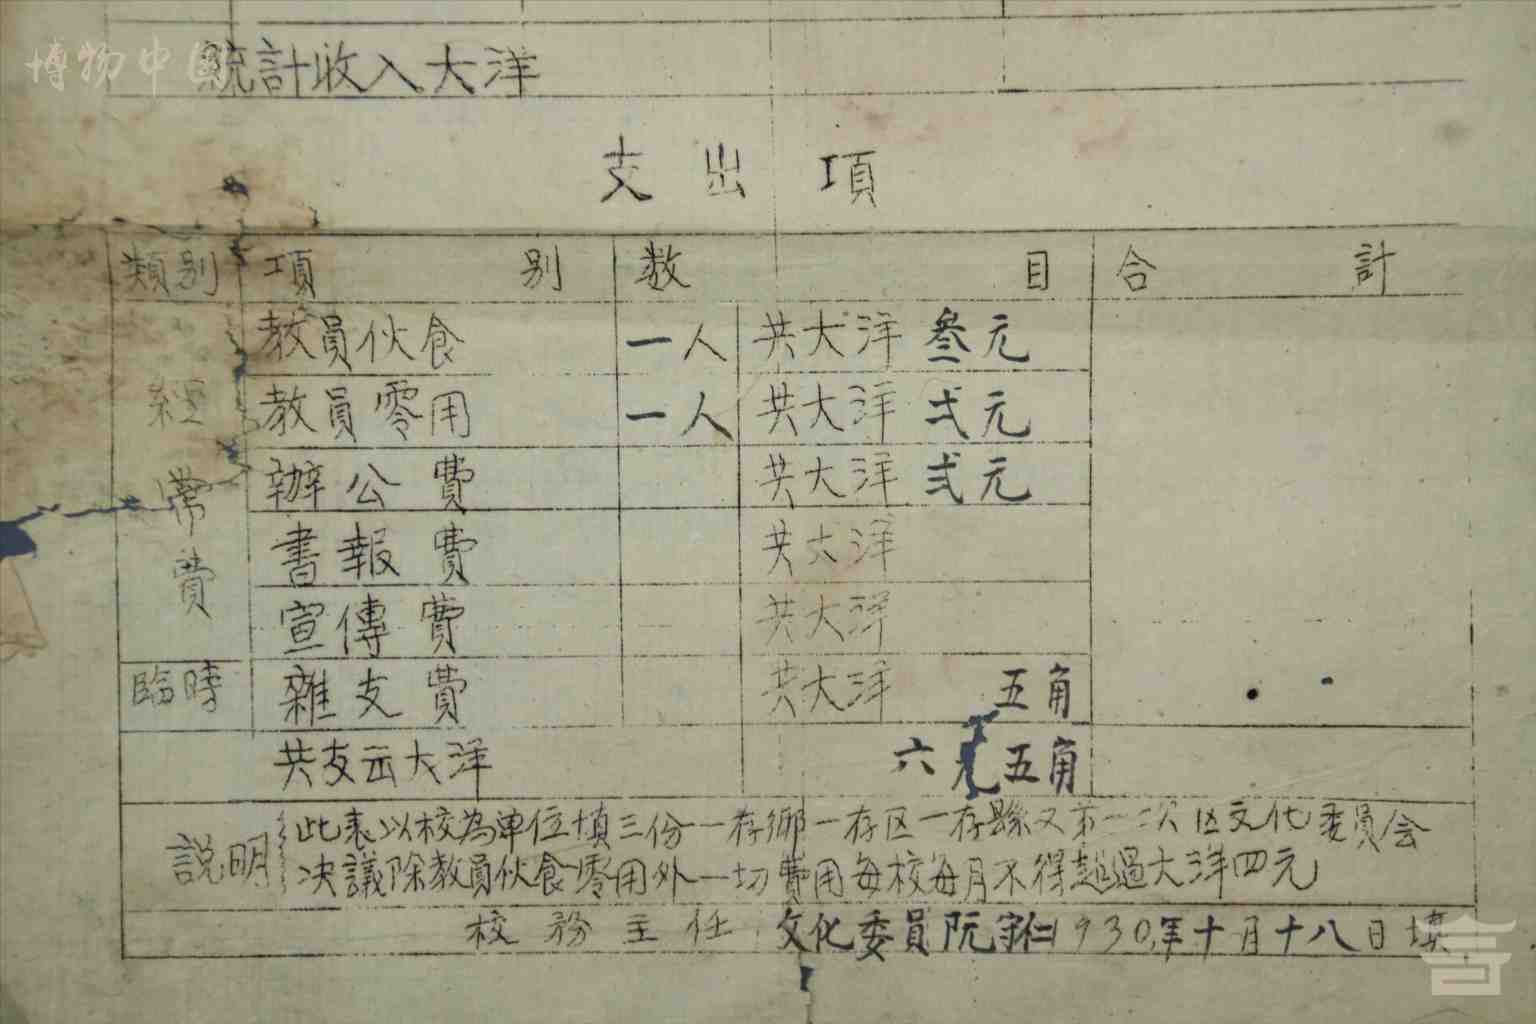 博物中国
統計收入大洋
支出項
類別 項別 数目 合計
經常費 教員伙食 一人 共大洋 叁元
教員零用 一人 共大洋 弍元
辦公費 共大洋 弍元
書報費 共大洋
宣傳費 共大洋
臨時 雜支費 共大洋 五角
共支出大洋 六元五角
説明 此表以校為单位填三份一存鄉一存区一存縣又第一二次区文化委員会
决議除教員伙食零用外一切費用每校每月不得超過大洋四元
校務主任 文化委員阮守仁 1930年十月十八日填